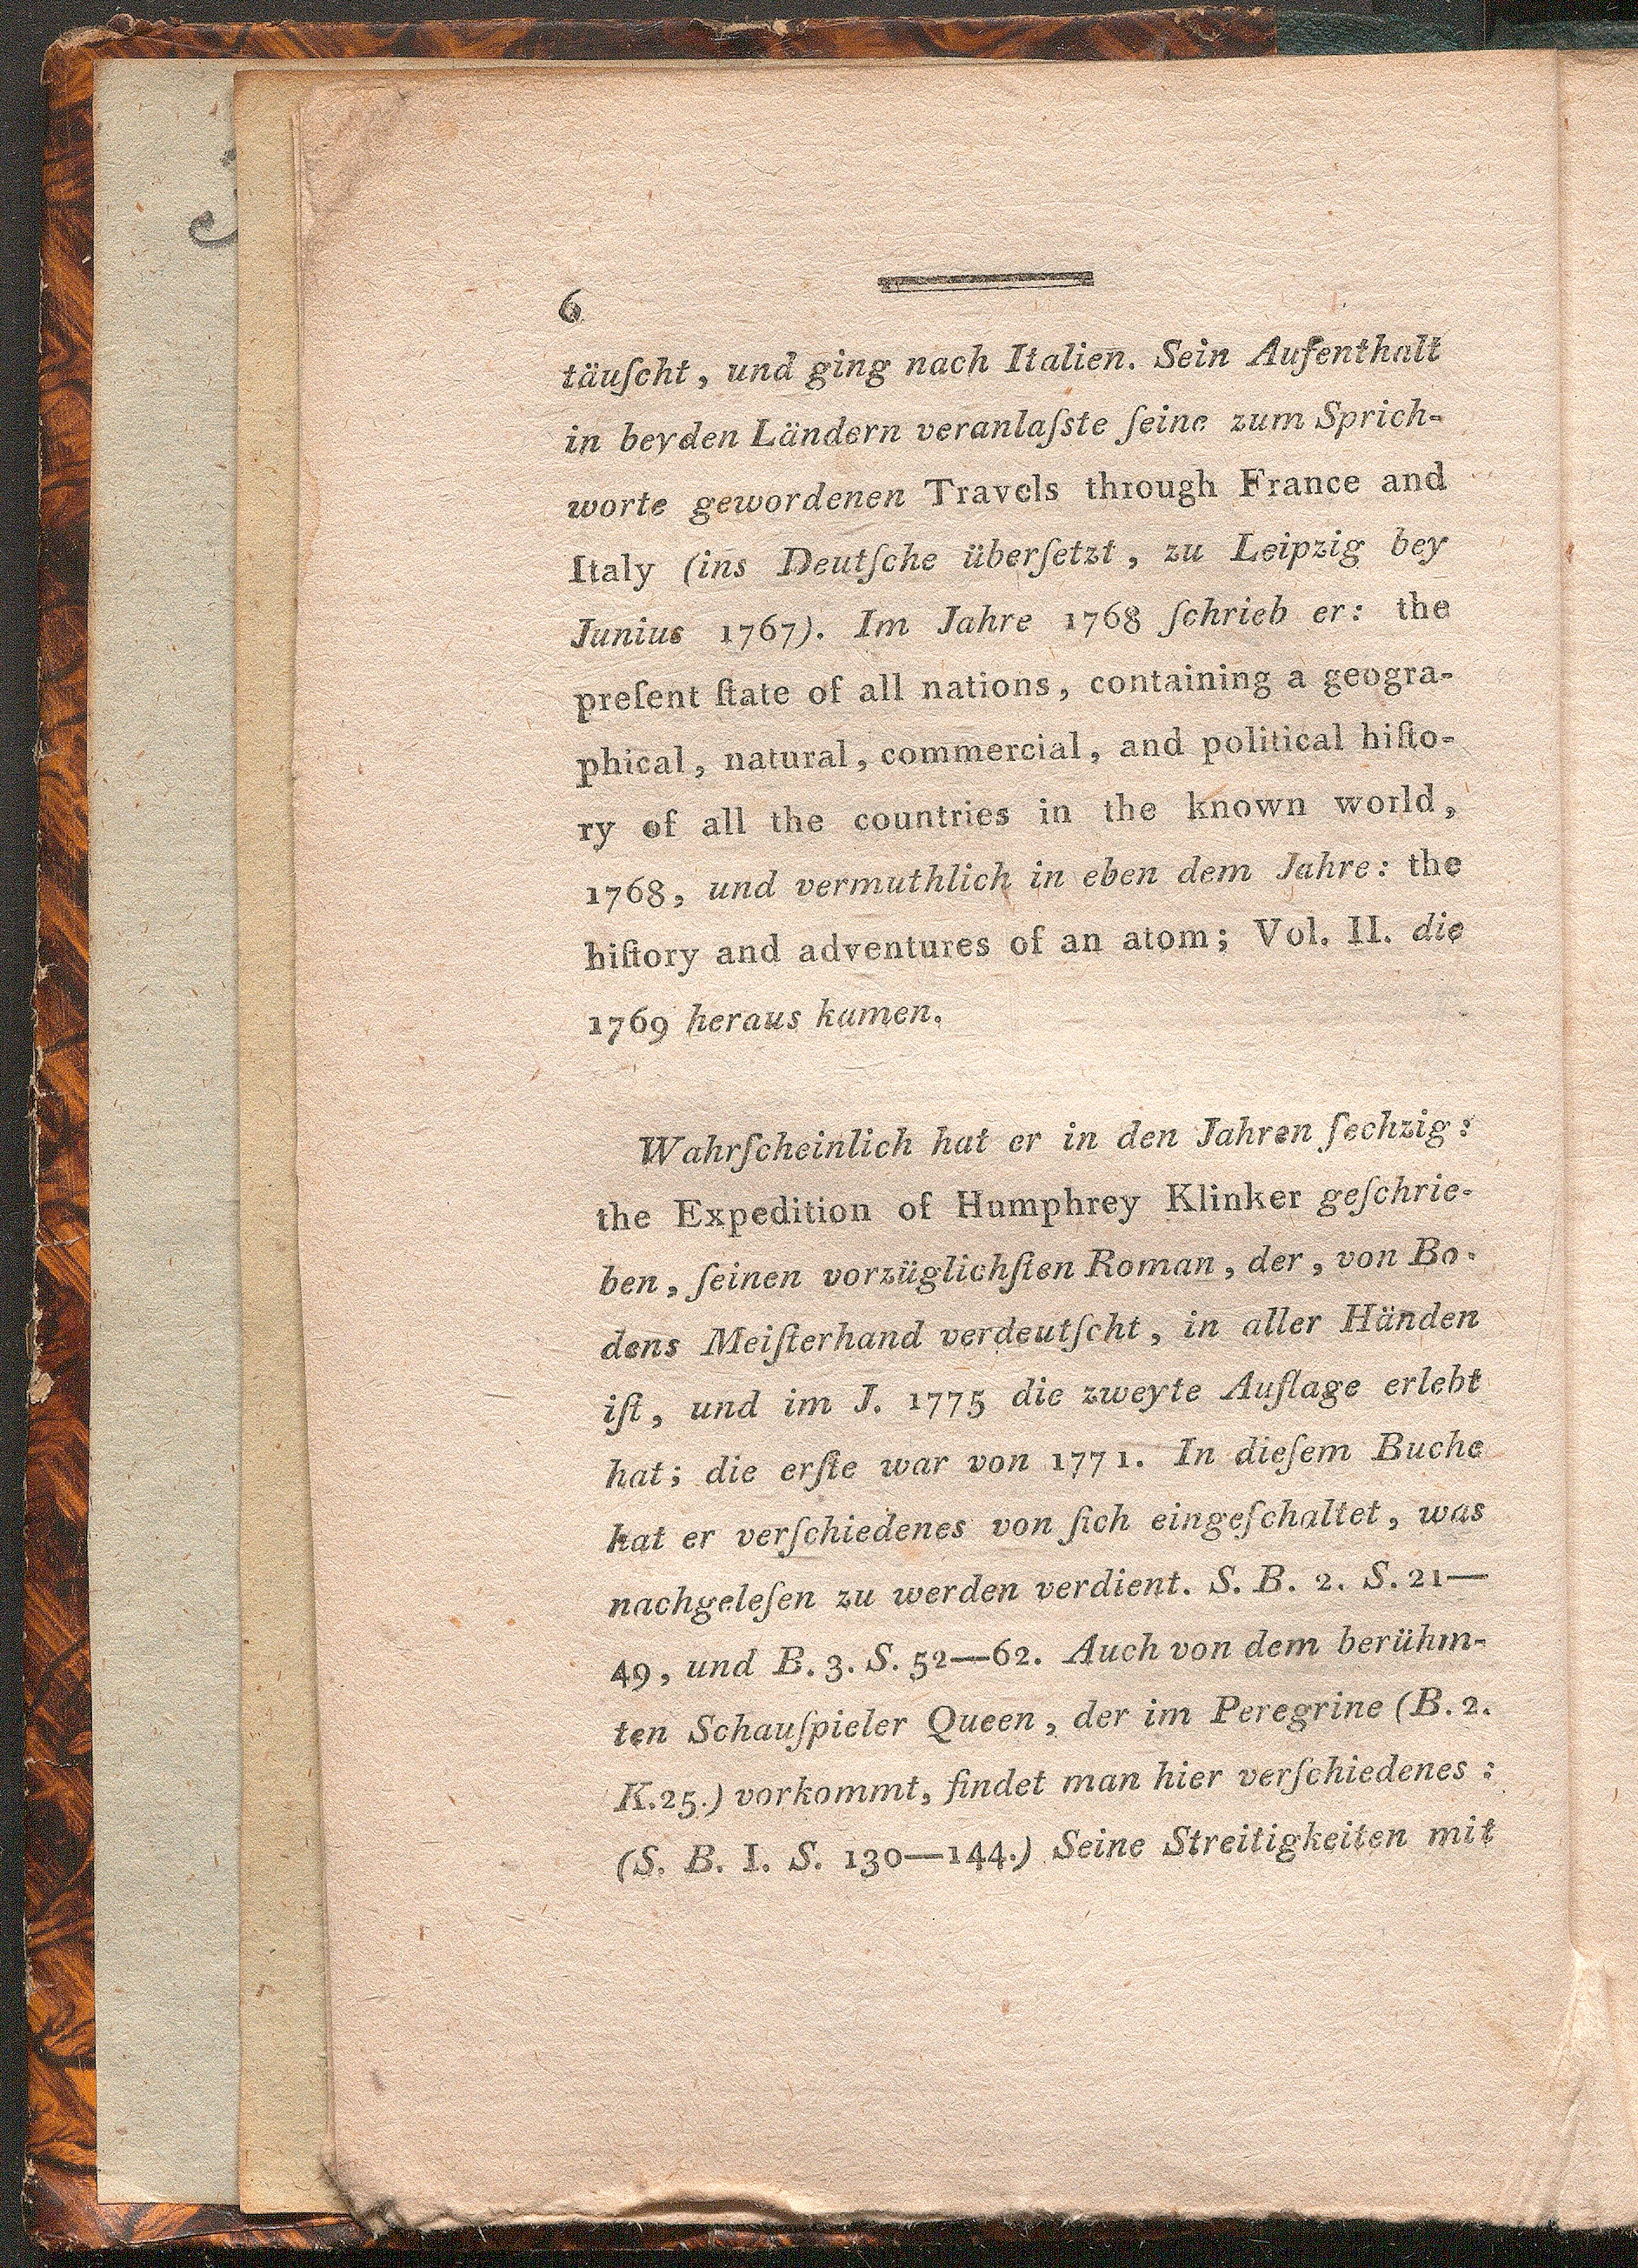 6
täuſcht, und ging nach Italien. Sein Aufenthalt
in beyden Ländern veranlaſste ſeine zum Sprich-
worte gewordenen Travels through France and
Italy (ins Deutſche überſetzt, zu Leipzig bey
Junius 1767). Im Jahre 1768 ſchrieb er: the
preſent ſtate of all nations, containing a geogra-
phical, natural, commercial, and political hiſto-
ry of all the countries in the known world,
1768, und vermuthlich in eben dem Jahre: the
hiſtory and adventures of an atom; Vol. II. die
1769 heraus kamen.
Wahrſcheinlich hat er in den Jahren ſechzig:
the Expedition of Humphrey Klinker geſchrie-
ben, ſeinen vorzüglichſten Roman, der, von Bo-
dens Meiſterhand verdeutſcht, in aller Händen
iſt, und im J. 1775 die zweyte Auflage erlebt
hat; die erſte war von 1771. In dieſem Buche
hat er verſchiedenes von ſich eingeſchaltet, was
nachgeleſen zu werden verdient. S. B. 2. S. 21—
49, und B. 3. S. 52—62. Auch von dem berühm-
ten Schauſpieler Queen, der im Peregrine (B. 2.
K. 25.) vorkommt, findet man hier verſchiedenes:
(S. B. I. S. 130—144.) Seine Streitigkeiten mit